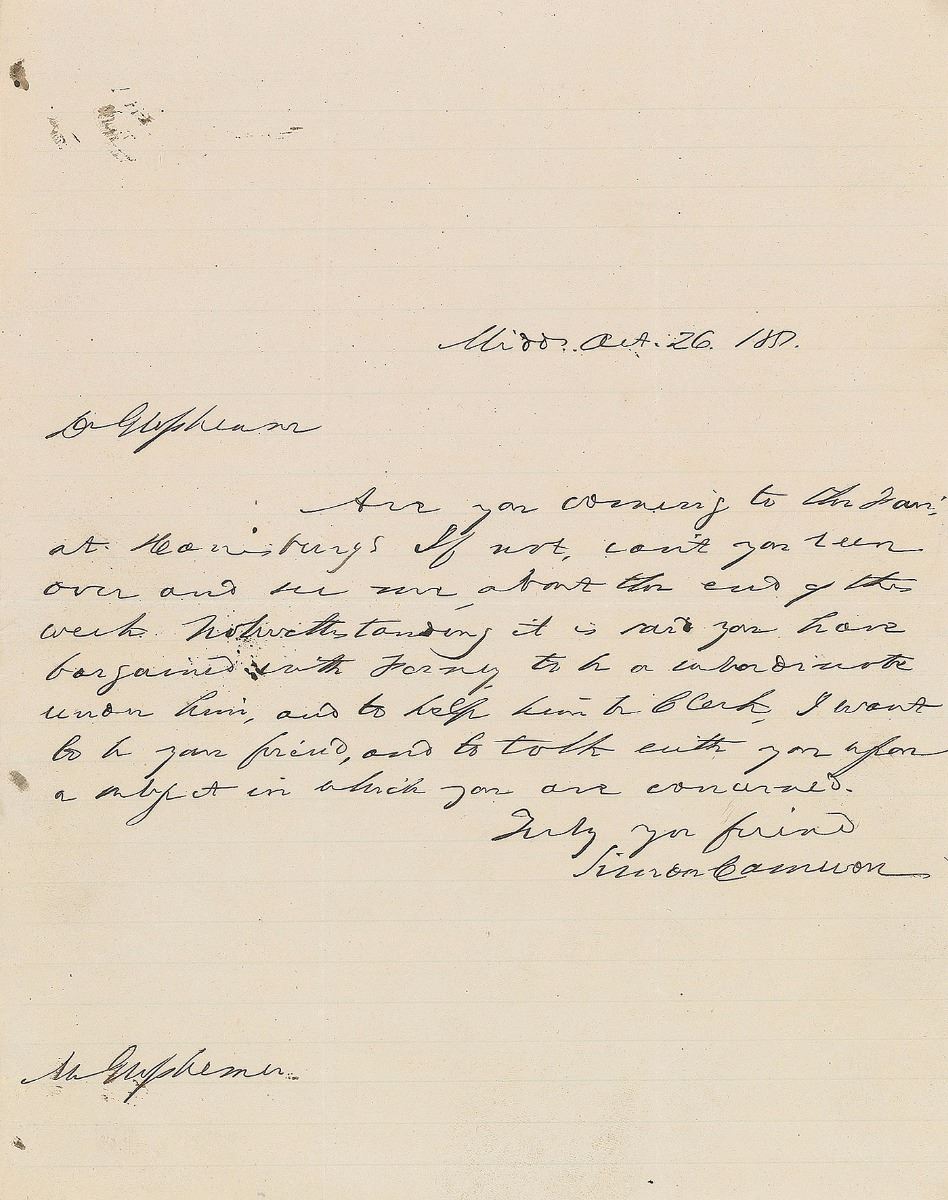 Midd. Oct. 26. 185
Dr
Are you coming to the Fair
at Harrisburg? If not, can't you run
over and see me, about the end of this
week. Notwithstanding it is said you have
bargained with Forney to be a subordinate
under him, and to help him be Clerk, I want
to be your friend, and to talk with you upon
a subject in which you are concerned.
Truly your friend
Simon Cameron
Mr